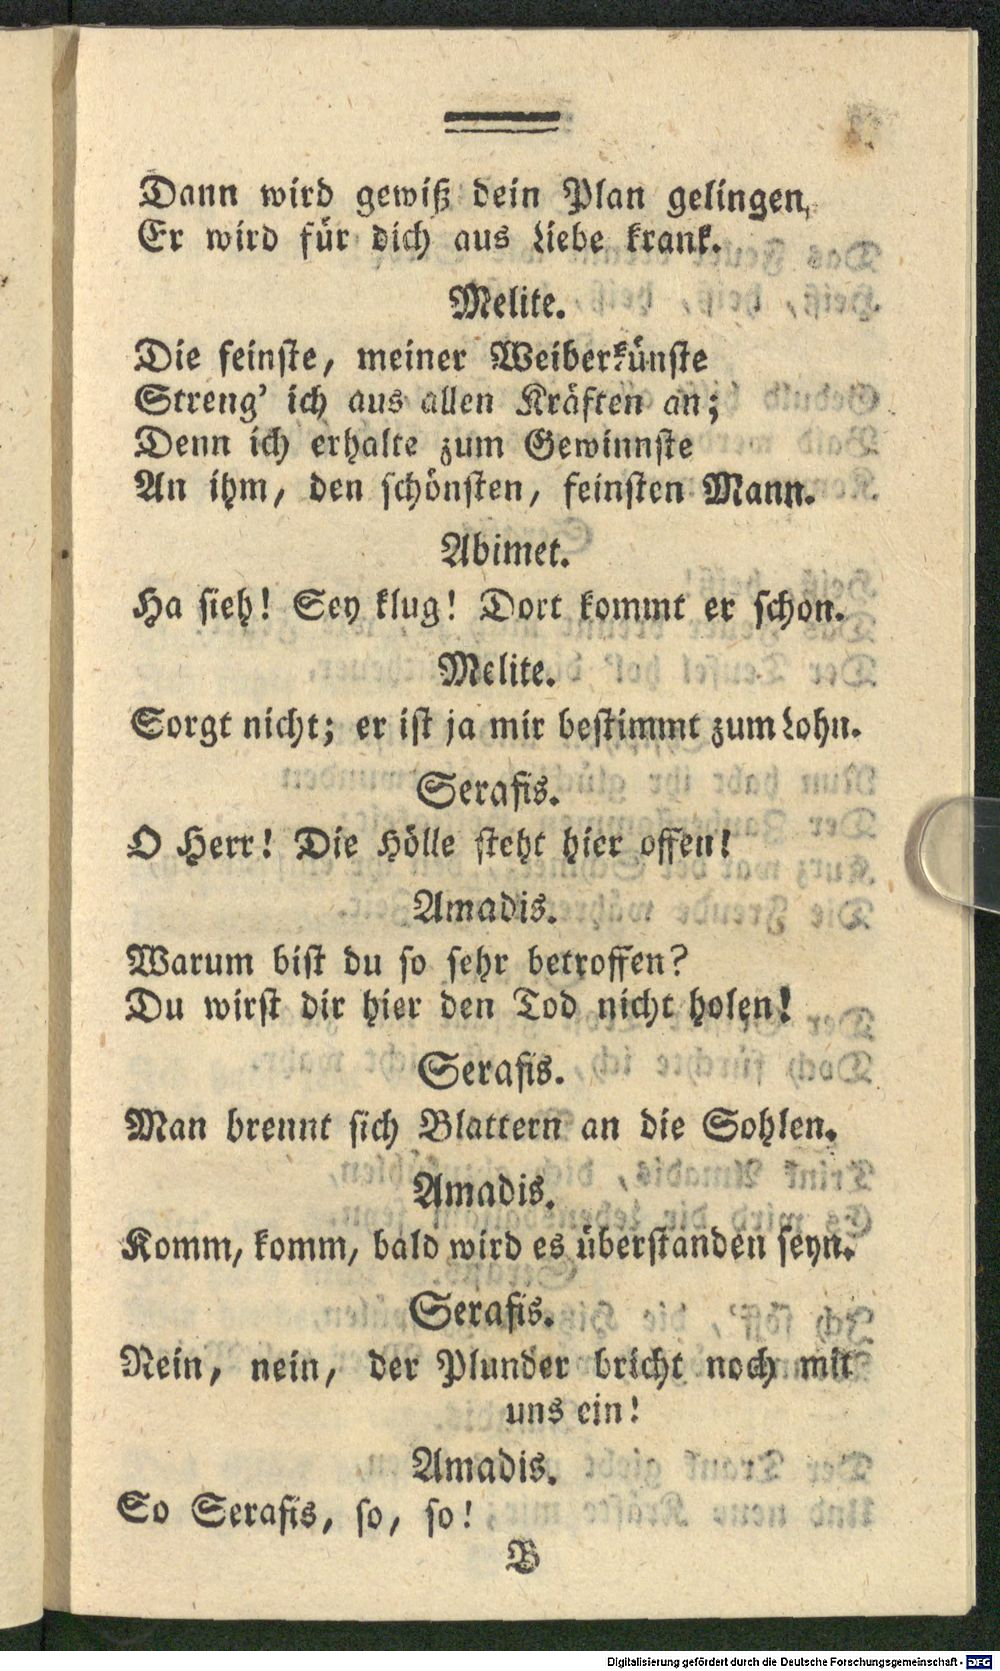 Dann wird gewiß dein Plan gelingen,
Er wird für dich aus Liebe krank.
Melite.
Die feinste, meiner Weiberkünste
Streng' ich aus allen Kräften an;
Denn ich erhalte zum Gewinnste
An ihm, den schönsten, feinsten Mann.
Abimet.
Ha sieh! Sey klug! Dort kommt er schon.
Melite.
Sorgt nicht; er ist ja mir bestimmt zum Lohn.
Serafis.
O Herr! Die Hölle steht hier offen!
Amadis.
Warum bist du so sehr betroffen?
Du wirst dir hier den Tod nicht holen!
Serafis.
Man brennt sich Blattern an die Sohlen.
Amadis.
Komm, komm, bald wird es überstanden seyn.
Serafis.
Nein, nein, der Plunder bricht noch mit
uns ein!
Amadis.
So Serafis, so, so!
B
Digitalisierung gefördert durch die Deutsche Forschungsgemeinschaft - DFG